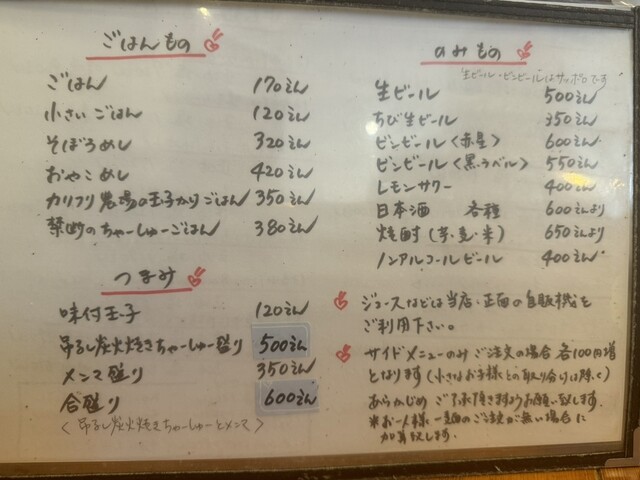 ごはんもの
ごはん 170えん
小さいごはん 120えん
そぼろめし 320えん
おやこめし 420えん
カリフリ農場の玉子かけごはん 350えん
禁断のちゃーしゅーごはん 380えん
つまみ
味付玉子 120えん
吊るし炭火焼きちゃーしゅー盛り 500えん
メンマ盛り 350えん
合盛り 600えん
〈吊るし炭火焼きちゃーしゅーとメンマ〉
のみもの
生ビール・ビンビールはサッポロです
生ビール 500えん
ちび生ビール 350えん
ビンビール〈赤星〉 600えん
ビンビール〈黒ラベル〉 550えん
レモンサワー 400えん
日本酒 各種 600えんより
焼酎(芋・麦・米) 650えんより
ノンアルコールビール 400えん
ジュースなどは当店・正面の自販機を
ご利用下さい。
サイドメニューのみご注文の場合 各100円増
となります(小さなお子様との取り分けは除く)
あらかじめ ご了承頂きますようお願い致します。
※お一人様一麺のご注文が無い場合に
加算致します。